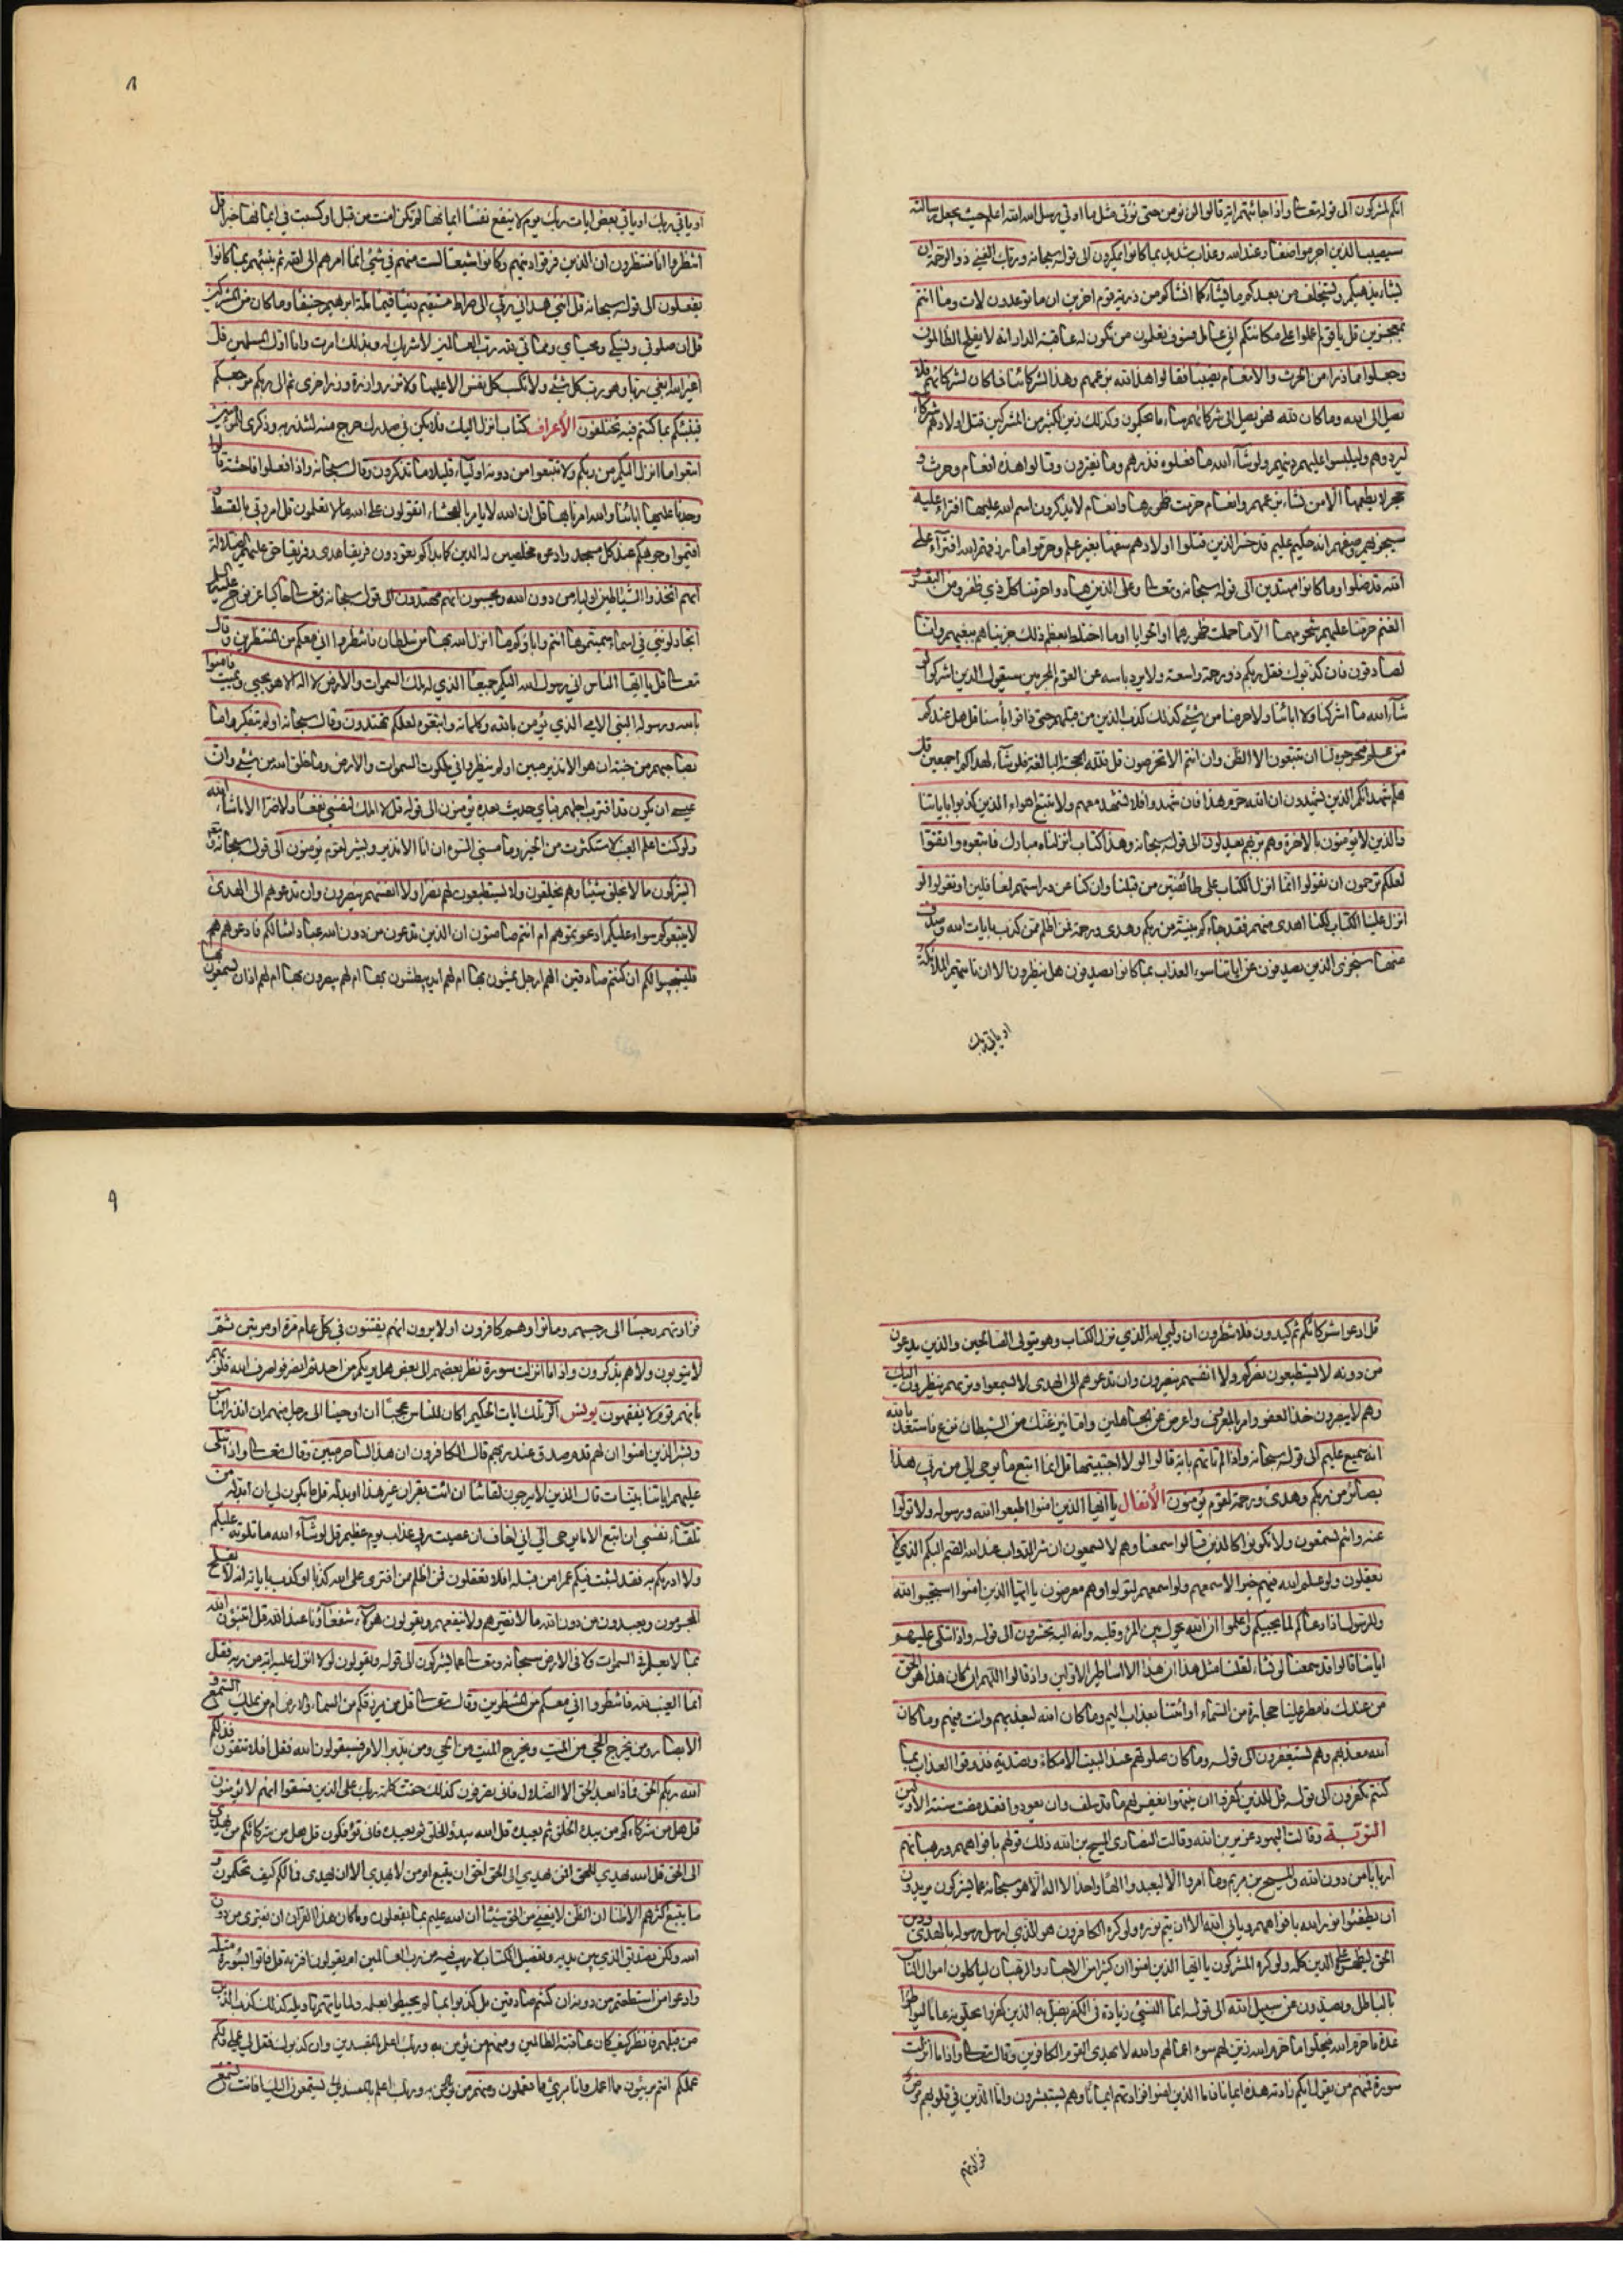 انكم لمشركون الى قوله تعالى واذا جائتهم اية قالوا لن نؤمن حتى نؤتى مثل ما اوتي رسل الله الله اعلم حيث يجعل رسالته
سيصيب الذين اجرموا صغار عند الله وعذاب شديد بما كانوا يمكرون الى قوله سبحانه وربك الغني ذو الرحمة ان
يشاء يذهبكم ويستخلف من بعدكم ما يشاء كما انشاكم من ذرية قوم اخرين ان ما توعدون لات وما انتم
بمعجزين قل يا قوم اعملوا على مكانتكم اني عامل فسوف تعلمون من تكون له عاقبة الدار انه لا يفلح الظالمون
وجعلوا لله مما ذرا من الحرث والانعام نصيبا فقالوا هذا لله بزعمهم وهذا لشركائنا فما كان لشركائهم فلا
يصل الى الله وما كان لله فهو يصل الى شركائهم ساء ما يحكمون وكذلك زين لكثير من المشركين قتل اولادهم شركاءهم
ليردوهم وليلبسوا عليهم دينهم ولو شاء الله ما فعلوه فذرهم وما يفترون وقالوا هذه انعام وحرث
حجر لا يطعمها الا من نشاء بزعمهم وانعام حرمت ظهورها وانعام لا يذكرون اسم الله عليها افتراء عليه
سيجزيهم وصفهم انه حكيم عليم قد خسر الذين قتلوا اولادهم سفها بغير علم وحرموا ما رزقهم الله افتراء على
الله قد ضلوا وما كانوا مهتدين الى قوله سبحانه وتعالى وعلى الذين هادوا حرمنا كل ذي ظفر ومن البقر و
الغنم حرمنا عليهم شحومهما الا ما حملت ظهورهما او الحوايا او ما اختلط بعظم ذلك جزيناهم ببغيهم وانا
لصادقون فان كذبوك فقل ربكم ذو رحمة واسعة ولا يرد باسه عن القوم المجرمين سيقول الذين اشركوا لو
شاء الله ما اشركنا ولا اباؤنا ولا حرمنا من شئ كذلك كذب الذين من قبلهم حتى ذاقوا بأسنا قل هل عندكم
من علم فتخرجوه لنا ان تتبعون الا الظن وان انتم الا تخرصون قل فلله الحجة البالغة فلو شاء لهداكم اجمعين قل
هلم شهداءكم الذين يشهدون ان الله حرم هذا فان شهدوا فلا تشهد معهم ولا تتبع اهواء الذين كذبوا باياتنا
والذين لا يؤمنون بالاخرة وهم بربهم يعدلون الى قوله سبحانه وهذا كتاب انزلناه مبارك فاتبعوه واتقوا
لعلكم ترحمون ان تقولوا انما انزل الكتاب على طائفتين من قبلنا وان كنا عن دراستهم لغافلين او تقولوا لو
انزل علينا الكتاب لكنا اهدى منهم فقد جاءكم بينة من ربكم وهدى ورحمة فمن اظلم ممن كذب بايات الله وصدف
عنها سنجزى الذين يصدفون عن اياتنا سوء العذاب بما كانوا يصدفون هل ينظرون الا ان تاتيهم الملائكة
او ياتي ربك
٨
او ياتي ربك او ياتي بعض ايات ربك يوم لا ينفع نفسا ايمانها لم تكن امنت من قبل او كسبت في ايمانها خيرا قل
انتظروا انا منتظرون ان الذين فرقوا دينهم وكانوا شيعا لست منهم في شئ انما امرهم الى الله ثم ينبئهم بما كانوا
يفعلون الى قوله سبحانه قل انني هداني ربي الى صراط مستقيم دينا قيما ملة ابرهيم حنيفا وما كان من المشركين
قل ان صلوتي ونسكي ومحياي ومماتي لله رب العالمين لا شريك له وبذلك امرت وانا اول المسلمين قل
اغير الله ابغي ربا وهو رب كل شئ ولا تكسب كل نفس الا عليها ولا تزر وازرة وزر اخرى ثم الى ربكم مرجعكم
فينبئكم بما كنتم فيه تختلفون الأعراف كتاب انزل اليك فلا يكن في صدرك حرج منه لتنذر به وذكرى للمؤمنين
اتبعوا ما انزل اليكم من ربكم ولا تتبعوا من دونه اولياء قليلا ما تذكرون وقال سبحانه واذا فعلوا فاحشة قالوا
وجدنا عليها اباءنا والله امرنا بها قل ان الله لا يامر بالفحشاء اتقولون على الله ما لا تعلمون قل امر ربي بالقسط و
اقيموا وجوهكم عند كل مسجد وادعوه مخلصين له الدين كما بدأكم تعودون فريقا هدى وفريقا حق عليهم الضلالة
انهم اتخذوا الشياطين اولياء من دون الله ويحسبون انهم مهتدون الى قوله سبحانه وتعالى حاكيا عن نوح عليه السلام
اتجادلونني في اسماء سميتموها انتم واباؤكم ما انزل الله بها من سلطان فانتظروا اني معكم من المنتظرين وقال
تعالى قل يا ايها الناس اني رسول الله اليكم جميعا الذي له ملك السموات والارض لا اله الا هو يحيي ويميت فامنوا
بالله ورسوله النبي الامي الذي يؤمن بالله وكلماته واتبعوه لعلكم تهتدون وقال سبحانه اولم يتفكروا ما
بصاحبهم من جنة ان هو الا نذير مبين اولم ينظروا في ملكوت السموات والارض وما خلق الله من شئ وان
عسى ان يكون قد اقترب اجلهم فباي حديث بعده يؤمنون الى قوله قل لا املك لنفسي نفعا ولا ضرا الا ما شاء الله
ولو كنت اعلم الغيب لاستكثرت من الخير وما مسني السوء ان انا الا نذير وبشير لقوم يؤمنون الى قوله سبحانه
ايشركون ما لا يخلق شيئا وهم يخلقون ولا يستطيعون لهم نصرا ولا انفسهم ينصرون وان تدعوهم الى الهدى
لا يتبعوكم سواء عليكم ادعوتموهم ام انتم صامتون ان الذين تدعون من دون الله عباد امثالكم فادعوهم
فليستجيبوا لكم ان كنتم صادقين الهم ارجل يمشون بها ام لهم ايد يبطشون بها ام لهم اعين يبصرون بها ام لهم اذان يسمعون بها
قل ادعوا شركائكم ثم كيدون فلا تنظرون ان وليي الله الذي نزل الكتاب وهو يتولى الصالحين والذين تدعون
من دونه لا يستطيعون نصركم ولا انفسهم ينصرون وان تدعوهم الى الهدى لا يسمعوا وتريهم ينظرون اليك
وهم لا يبصرون خذ العفو وامر بالعرف واعرض عن الجاهلين واما ينزغنك من الشيطان نزغ فاستعذ بالله
انه سميع عليم الى قوله سبحانه واذا لم تاتهم باية قالوا لولا اجتبيتها قل انما اتبع ما يوحى الي من ربي هذا
بصائر من ربكم وهدى ورحمة لقوم يؤمنون الأنفال يا ايها الذين امنوا اطيعوا الله ورسوله ولا تولوا
عنه وانتم تسمعون ولا تكونوا كالذين قالوا سمعنا وهم لا يسمعون ان شر الدواب عند الله الصم البكم الذين لا
يعقلون ولو علم الله فيهم خيرا لاسمعهم ولو اسمعهم لتولوا وهم معرضون يا ايها الذين امنوا استجيبوا لله
وللرسول اذا دعاكم لما يحييكم واعلموا ان الله يحول بين المرء وقلبه وانه اليه تحشرون الى قوله واذا تتلى عليهم
اياتنا قالوا قد سمعنا لو نشاء لقلنا مثل هذا ان هذا الا اساطير الاولين واذ قالوا اللهم ان كان هذا هو الحق
من عندك فامطر علينا حجارة من السماء او ائتنا بعذاب اليم وما كان الله ليعذبهم وانت فيهم وما كان
الله معذبهم وهم يستغفرون الى قوله وما كان صلوتهم عند البيت الا مكاء وتصدية فذوقوا العذاب بما
كنتم تكفرون الى قوله قل للذين كفروا ان ينتهوا يغفر لهم ما قد سلف وان يعودوا فقد مضت سنة الاولين
التوبة وقالت اليهود عزير بن الله وقالت النصارى المسيح بن الله ذلك قولهم بافواههم ورهبانهم
اربابا من دون الله والمسيح بن مريم وما امروا الا ليعبدوا الها واحدا لا اله الا هو سبحانه عما يشركون يريدون
ان يطفئوا نور الله بافواههم ويابى الله الا ان يتم نوره ولو كره الكافرون هو الذي ارسل رسوله بالهدى ودين
الحق ليظهره على الدين كله ولو كره المشركون يا ايها الذين امنوا ان كثيرا من الاحبار والرهبان لياكلون اموال الناس
بالباطل ويصدون عن سبيل الله الى قوله انما النسئ زيادة في الكفر يضل به الذين كفروا يحلونه عاما ليواطؤا
عدة ما حرم الله فيحلوا ما حرم الله زين لهم سوء اعمالهم والله لا يهدي القوم الكافرين وقال تعالى واذا ما انزلت
سورة فمنهم من يقول ايكم زادته هذه ايمانا فاما الذين امنوا فزادتهم ايمانا وهم يستبشرون واما الذين في قلوبهم مرض
فزادتهم
٩
فزادتهم رجسا الى رجسهم وماتوا وهم كافرون اولا يرون انهم يفتنون في كل عام مرة او مرتين ثم
لا يتوبون ولا هم يذكرون واذا ما انزلت سورة نظر بعضهم الى بعض هل يريكم من احد ثم انصرفوا صرف الله قلوبهم
بانهم قوم لا يفقهون يونس الر تلك ايات الكتاب الحكيم اكان للناس عجبا ان اوحينا الى رجل منهم ان انذر الناس
وبشر الذين امنوا ان لهم قدم صدق عند ربهم قال الكافرون ان هذا لساحر مبين وقال تعالى واذا تتلى
عليهم اياتنا بينات قال الذين لا يرجون لقائنا ائت بقران غير هذا او بدله قل ما يكون لي ان ابدله من
تلقاء نفسي ان اتبع الا ما يوحى الي اني اخاف ان عصيت ربي عذاب يوم عظيم قل لو شاء الله ما تلوته عليكم
ولا ادريكم به فقد لبثت فيكم عمرا من قبله افلا تعقلون فمن اظلم ممن افترى على الله كذبا او كذب باياته انه لا يفلح
المجرمون ويعبدون من دون الله ما لا يضرهم ولا ينفعهم ويقولون هؤلاء شفعاؤنا عند الله قل اتنبؤن الله
بما لا يعلم في السموات ولا في الارض سبحانه وتعالى عما يشركون الى قوله ويقولون لولا انزل عليه اية من ربه فقل
انما الغيب لله فانتظروا اني معكم من المنتظرين وقال تعالى قل من يرزقكم من السماء والارض امن يملك السمع و
الابصار ومن يخرج الحي من الميت ويخرج الميت من الحي ومن يدبر الامر فسيقولون الله فقل افلا تتقون فذلكم
الله ربكم الحق فماذا بعد الحق الا الضلال فانى تصرفون كذلك حقت كلمة ربك على الذين فسقوا انهم لا يؤمنون
قل هل من شركائكم من يبدؤ الخلق ثم يعيده قل الله يبدؤ الخلق ثم يعيده فانى تؤفكون قل هل من شركائكم من يهدي
الى الحق قل الله يهدي للحق افمن يهدي الى الحق احق ان يتبع امن لا يهدي الا ان يهدى فما لكم كيف تحكمون و
ما يتبع اكثرهم الا ظنا ان الظن لا يغني من الحق شيئا ان الله عليم بما يفعلون وما كان هذا القران ان يفترى من دون
الله ولكن تصديق الذي بين يديه وتفصيل الكتاب لا ريب فيه من رب العالمين ام يقولون افتريه قل فاتوا بسورة مثله
وادعوا من استطعتم من دون الله ان كنتم صادقين بل كذبوا بما لم يحيطوا بعلمه ولما ياتهم تاويله كذلك كذب الذين
من قبلهم فانظر كيف كان عاقبة الظالمين ومنهم من يؤمن به وربك اعلم بالمفسدين وان كذبوك فقل لي عملي ولكم
عملكم انتم بريئون مما اعمل وانا برئ مما تعملون ومنهم من يستمعون اليك افانت تسمع